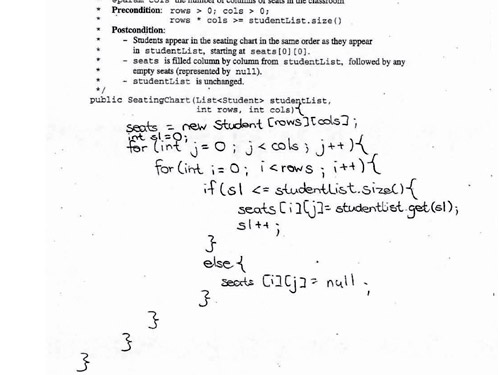 * Precondition: rows > 0; cols > 0;
* rows * cols >= studentList.size()
* Postcondition:
* - Students appear in the seating chart in the same order as they appear
* in studentList, starting at seats[0][0].
* - seats is filled column by column from studentList, followed by any
* empty seats (represented by null).
* - studentList is unchanged.
*/
public SeatingChart(List<Student> studentList,
int rows, int cols){
seats = new Student [rows][cols];
int sl=0;
for (int j=0; j<cols; j++){
for(int i=0; i<rows; i++){
if(sl <= studentList.size(){
seats[i][j]=studentList.get(sl);
sl++;
}
else{
seats [i][j]= null;
}
}
}
}